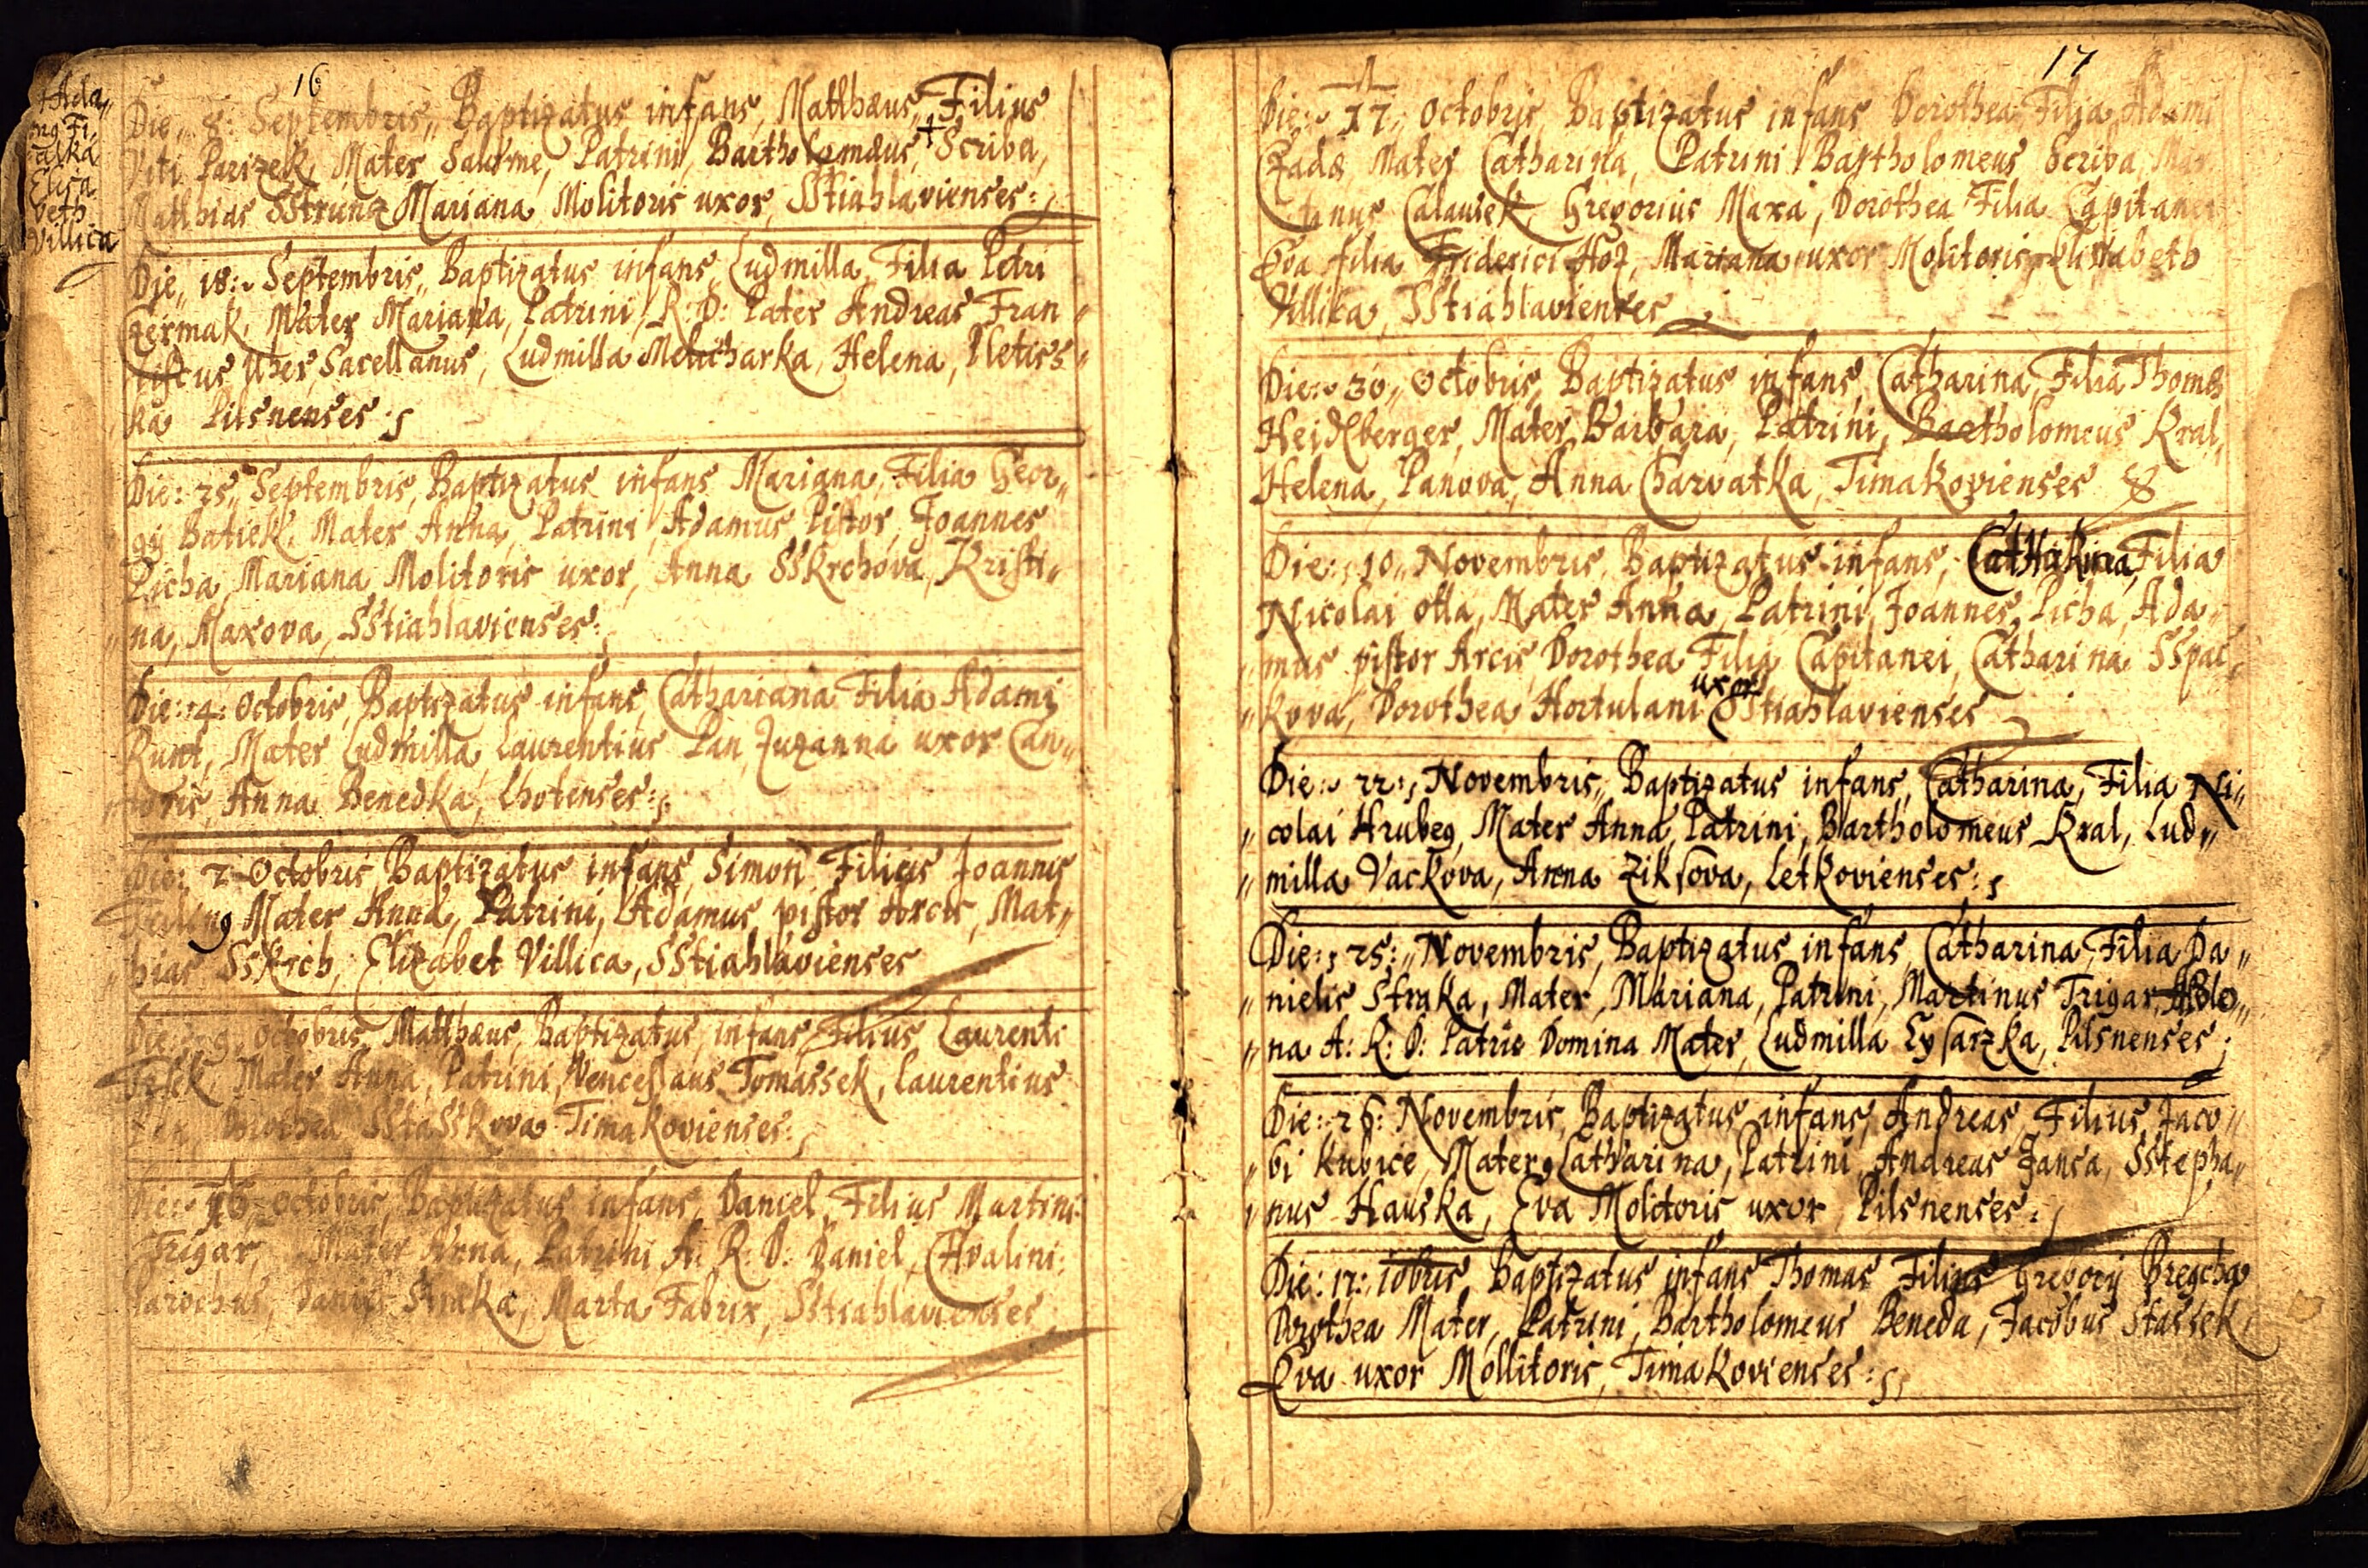 16
Ada„
mg Fi,
alka
Elisa
beth
Villica
Die„ 8: Septembris„ Baptizatus infans, Matthæus, Filius
Viti Parizek, Mater Salome, Patrini, Bartholomæus, + Scriba,
Mathias SStrunz Mariana Molitoris uxor, SStiahlavienses:
Die„ 18: Septembris, Baptizatus infans, Ludmilla, Filia Petri
Czermak, Mater Mariana, Patrini, R: D: Pater Andreas Fran„
Sacellanus, Ludmilla Melicharka, Helena, Pletiss„
ka Pilsnenses:
Die: 25„ Septembris, Baptizatus infans Mariana, Filia Geor„
gij Batiek, Mater Anna, Patrini, Adamus Pistor, Joannes
Picha, Mariana Molitoris uxor, Anna SSkrchova, Kristi„
„na, Maxova, SStiahlavienses:
Die: 4: Octobris, Baptizatus infans, Cathariana Filia Adami
Runt, Mater Ludmilla, Laurentius Pan, Zuzanna uxor Can„
„toris, Anna Benedka, Lhotenses:
Die: 7 Octobris, Baptizatus infans, Simon, Filius Joannis
Mater Anna, Patrini, Adamus pistor Arcis, Mat„
„hias SSkrch, Elizabet Villica, SStiahlavienses
Die: 9 Octobris, Matthæus, Baptizatus, infans, Filius Laurenti
Mater Anna, Patrini, Venceslaus Tomassek, Laurentius
Pan, Dorothea SStaSSkova Timakovienses:
Die: 16 Octobris, Baptizatus infans, Daniel, Filius Martini
Trigar, Mater Anna, Patrini A: R: D: Daniel, Chvalini:
Parochus, Daniel Straka, Marta Fabrix, SStiahlavienses,
17
Die: 17„ Octobris, Baptizatus infans Dorothea Filia Adami
Czada, Mater Catharina, Patrini Bartholomeus Scriba, Mar
tinus Calausek, Gregorius Maxa, Dorothea Filia Capitanei
Eva filia Friderici Hoz, Mariana uxor Molitoris, Elisabeth
Villica, SStiahlavienses
Die: 30„ Octobris, Baptizatus infans, Catharina, Filia Thomæ
Heidlberger, Mater Barbara, Patrini, Bartholomeus Kral,
Helena, Panova, Anna Charvatka, Timakovienses
Die: 10„ Novembris, Baptizatus infans, Catharina, Filia
Nicolai Otta, Mater Anna, Patrini, Joannes, Picha, Ada„
„mus pistor Arcis, Dorothea Filia Capitanei, Catharina SSpac„
„kova, Dorothea Hortulani uxor SStiahlavienses
Die: 22: Novembris„ Baptizatus infans, Catharina, Filia Ni„
„colai Hrubeg, Mater Anna, Patrini, Bartholomeus Kral, Lud„
„milla Vackova, Anna Ziksova, Letkovienses:
Die: 25: „Novembris, Baptizatus infans, Catharina, Filia Da„
„nielis Straka, Mater, Mariana, Patrini, Martinus Trigar,
„na A: R: D: Patris Domina Mater, Ludmilla Lysarzka, Pilsnenses;
Die: 26: Novembris, Baptizatus infans, Andreas, Filius, Jaco„
„bi Kubice, Mater Catharina, Patrini Andreas Zansa, SStepha„
„nus Hauska, Eva Molitoris uxor, Pilsnenses:
Die: 17: 10bris, Baptizatus infans Thomas Filius Gregorij Bregcha
Dorothea Mater, Patrini, Bartholomeus Beneda, Jacobus Stassek,
Eva uxor Mollitoris, Timakovienses: